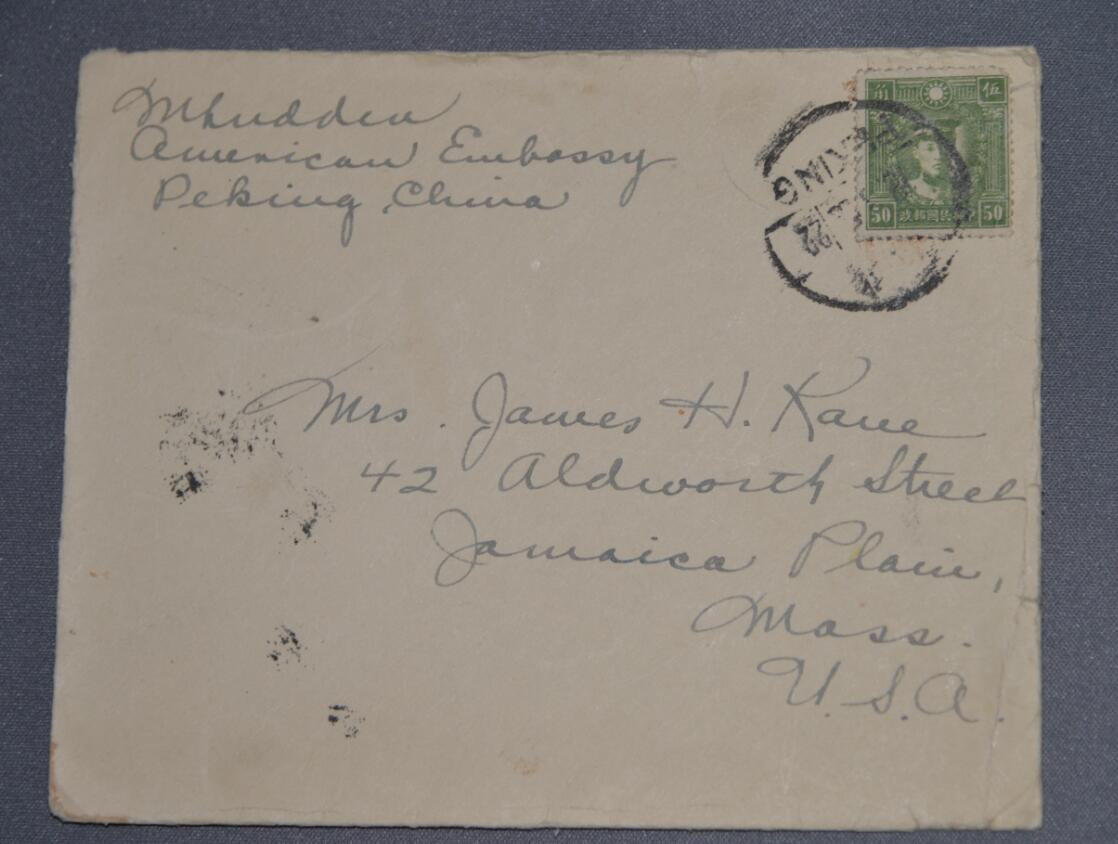 American Embassy
Peking, China
角 伍
50 中華民國郵政 50
22
Mrs. James H. Kane
42 Aldworth Street
Jamaica Plain,
Mass.
U.S.A.